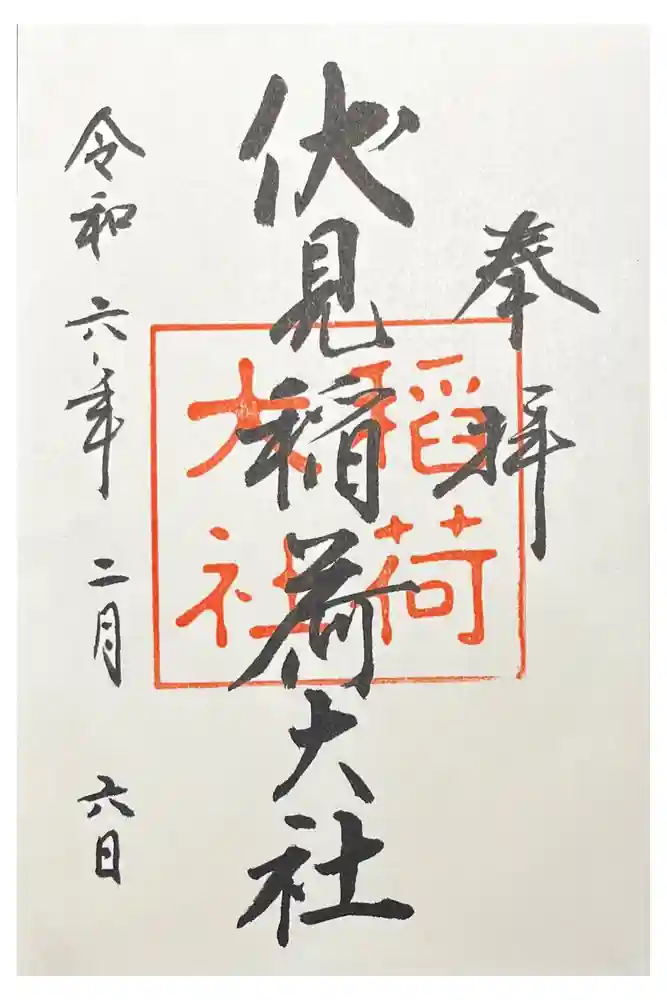 奉拝
伏見稲荷大社
稲荷
大社
令和六年 二月 六日